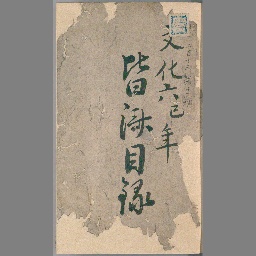 文化六巳年
皆済目録